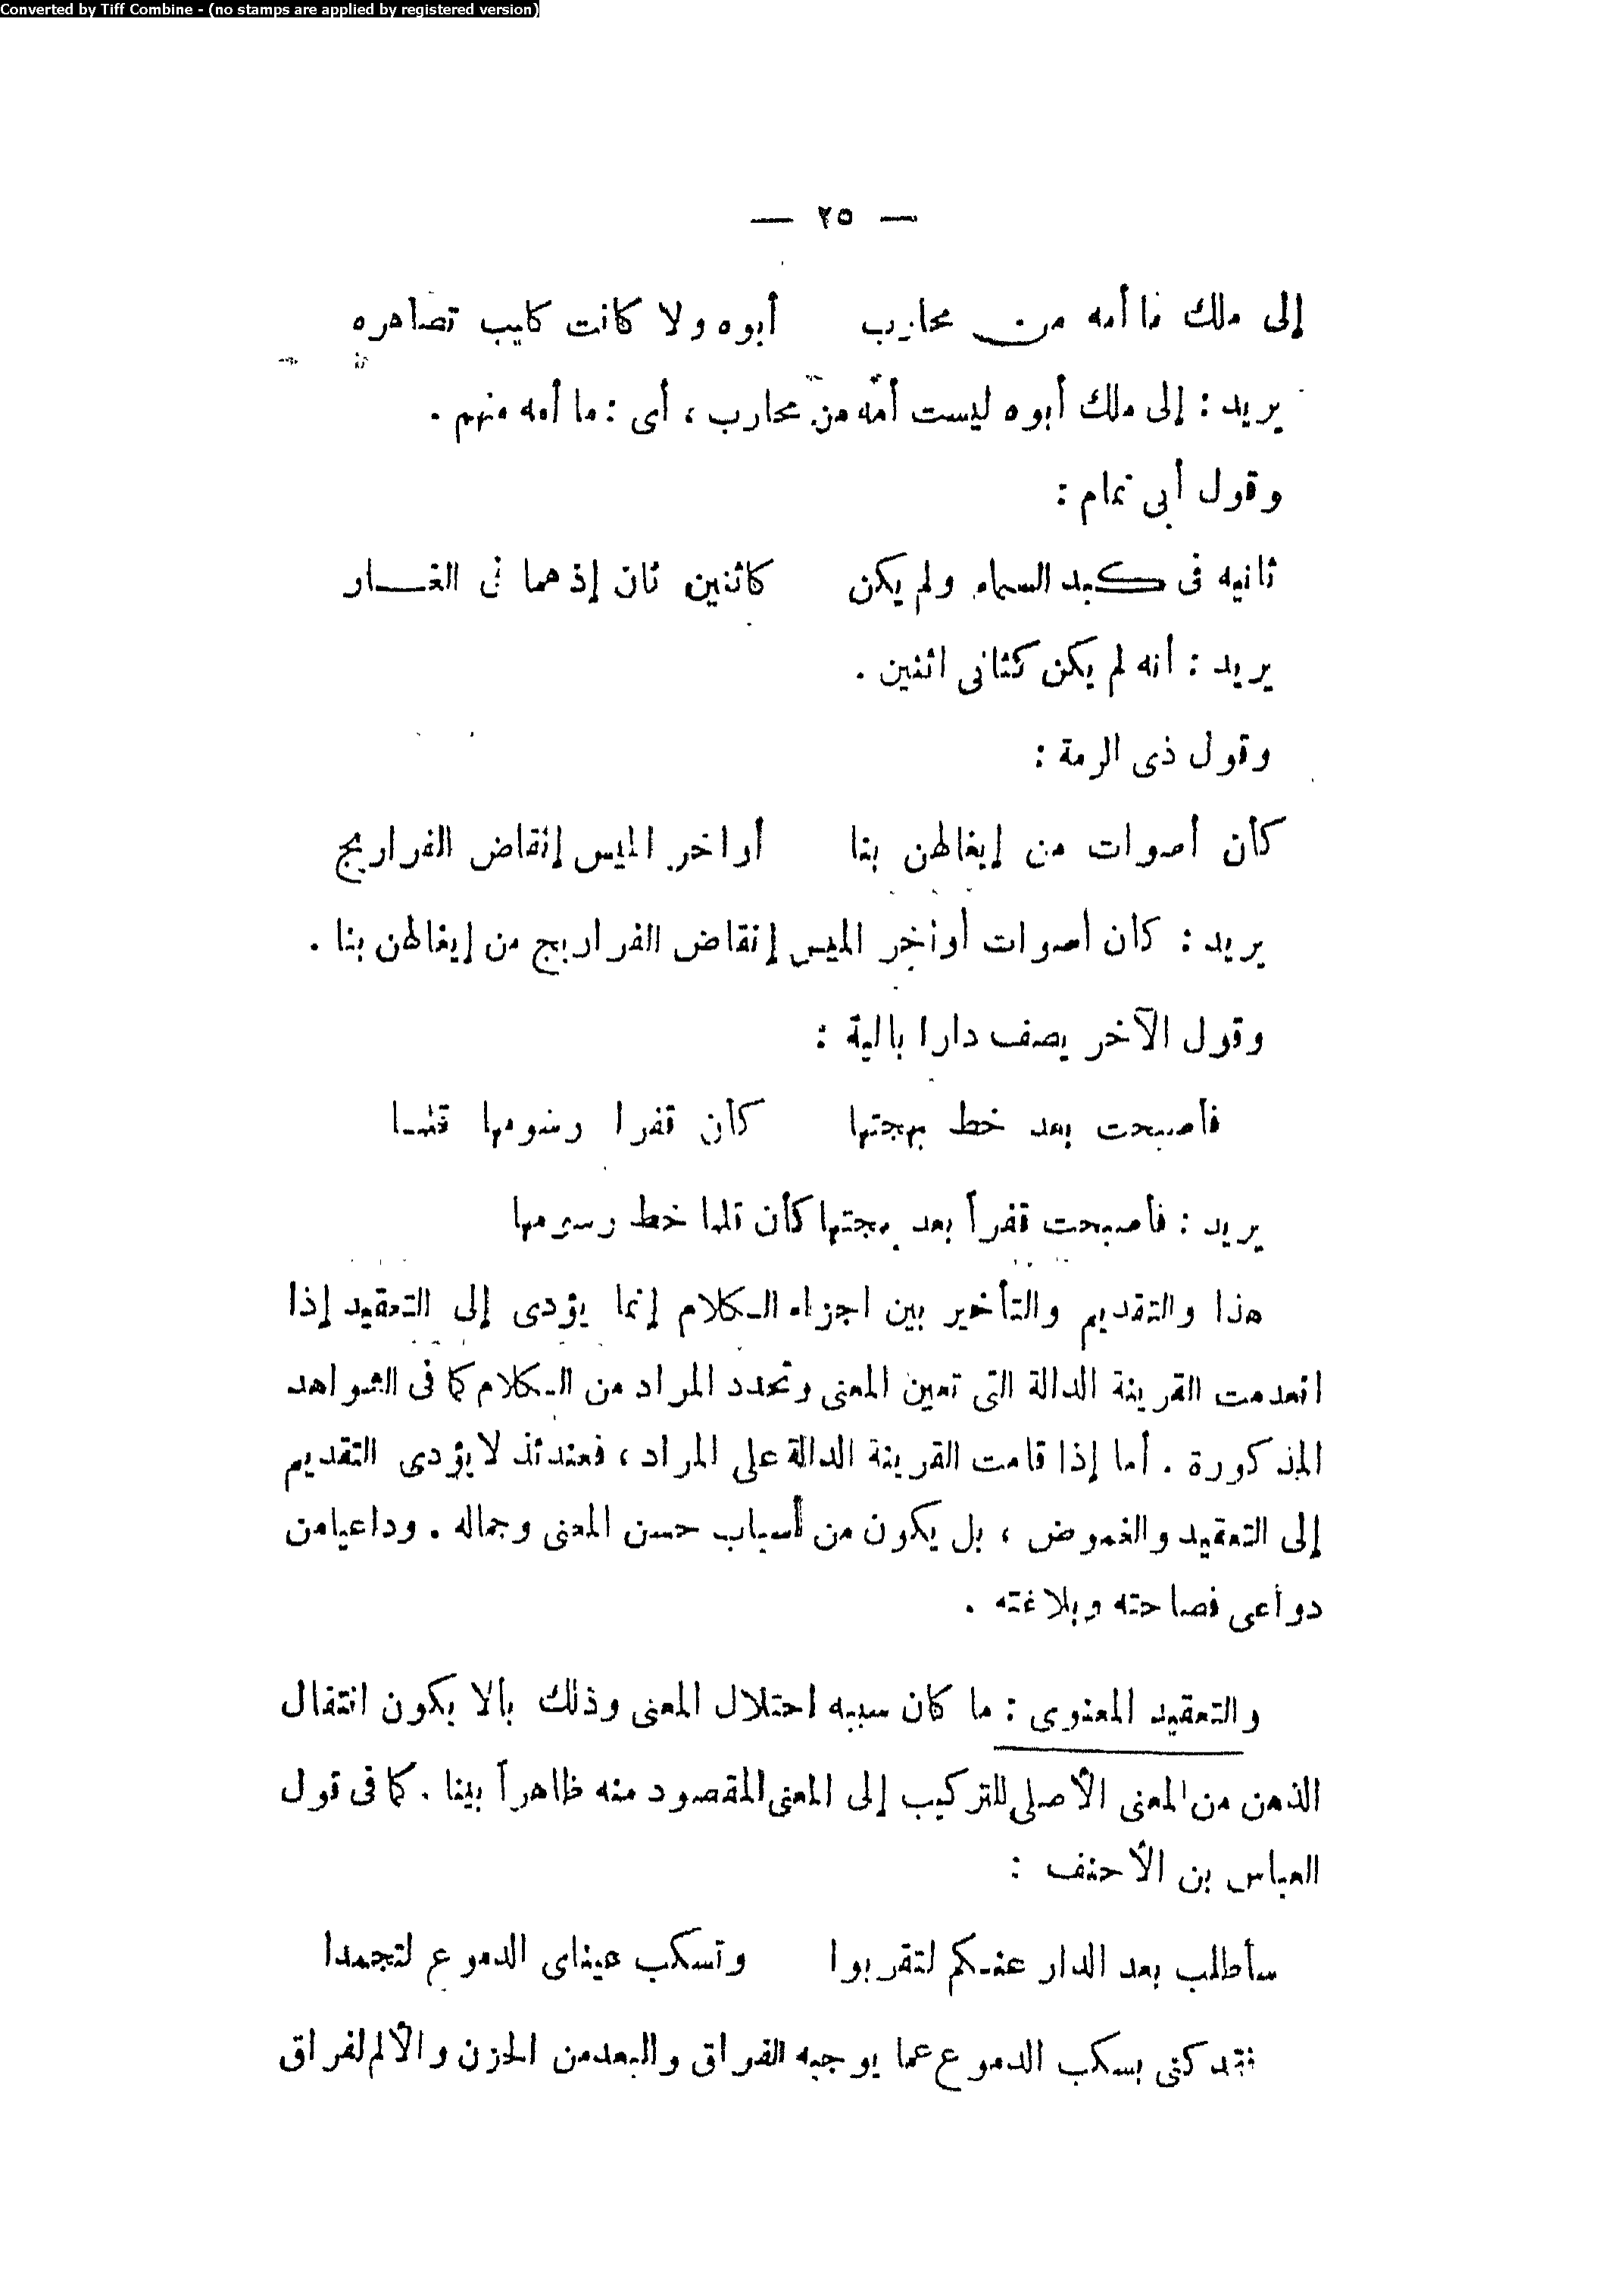 Converted by Tiff Combine - (no stamps are applied by registered version)
— ٢٥ —
إلى ملك ما أمه من محارب أبوه ولا كانت كليب تصاهره
يريد : إلى ملك أبوه ليست أمه من محارب ، أى : ما أمه منهم .
وقول أبى تمام :
ثانيه فى كبد السماء ولم يكن كاثنين ثان إذ هما فى الغار
يريد : أنه لم يكن كثانى اثنين .
وقول ذى الرمة :
كأن أصوات من إيغالهن بنا أواخر الميس إنقاض الفراريج
يريد : كأن أصوات أواخر الميس إنقاض الفراريج من إيغالهن بنا .
وقول الآخر يصف دارا بالية :
فأصبحت بعد خط بهجتها كأن قفرا رسومها قلما
يريد : فأصبحت قفراً بعد بهجتها كأن قلما خط رسومها
هذا والتقديم والتأخير بين اجزاء الكلام إنما يؤدى إلى التعقيد إذا
انعدمت القرينة الدالة التى تعين المعنى وتحدد المراد من الكلام كما فى الشواهد
المذكورة . أما إذا قامت القرينة الدالة على المراد ، فعندئذ لا يؤدى التقديم
إلى التعقيد والغموض ، بل يكون من أسباب حسن المعنى وجماله . وداعيا من
دواعى فصاحته وبلاغته .
والتعقيد المعنوى : ما كان سببه اختلال المعنى وذلك بألا يكون انتقال
الذهن من المعنى الأصلى للتركيب إلى المعنى المقصود منه ظاهراً بينا . كما فى قول
العباس بن الأحنف :
سأطلب بعد الدار عنكم لتقربوا وتسكب عيناى الدموع لتجمدا
فقد كنى بسكب الدموع عما يوجبه الفراق والبعد من الحزن والألم لفراق